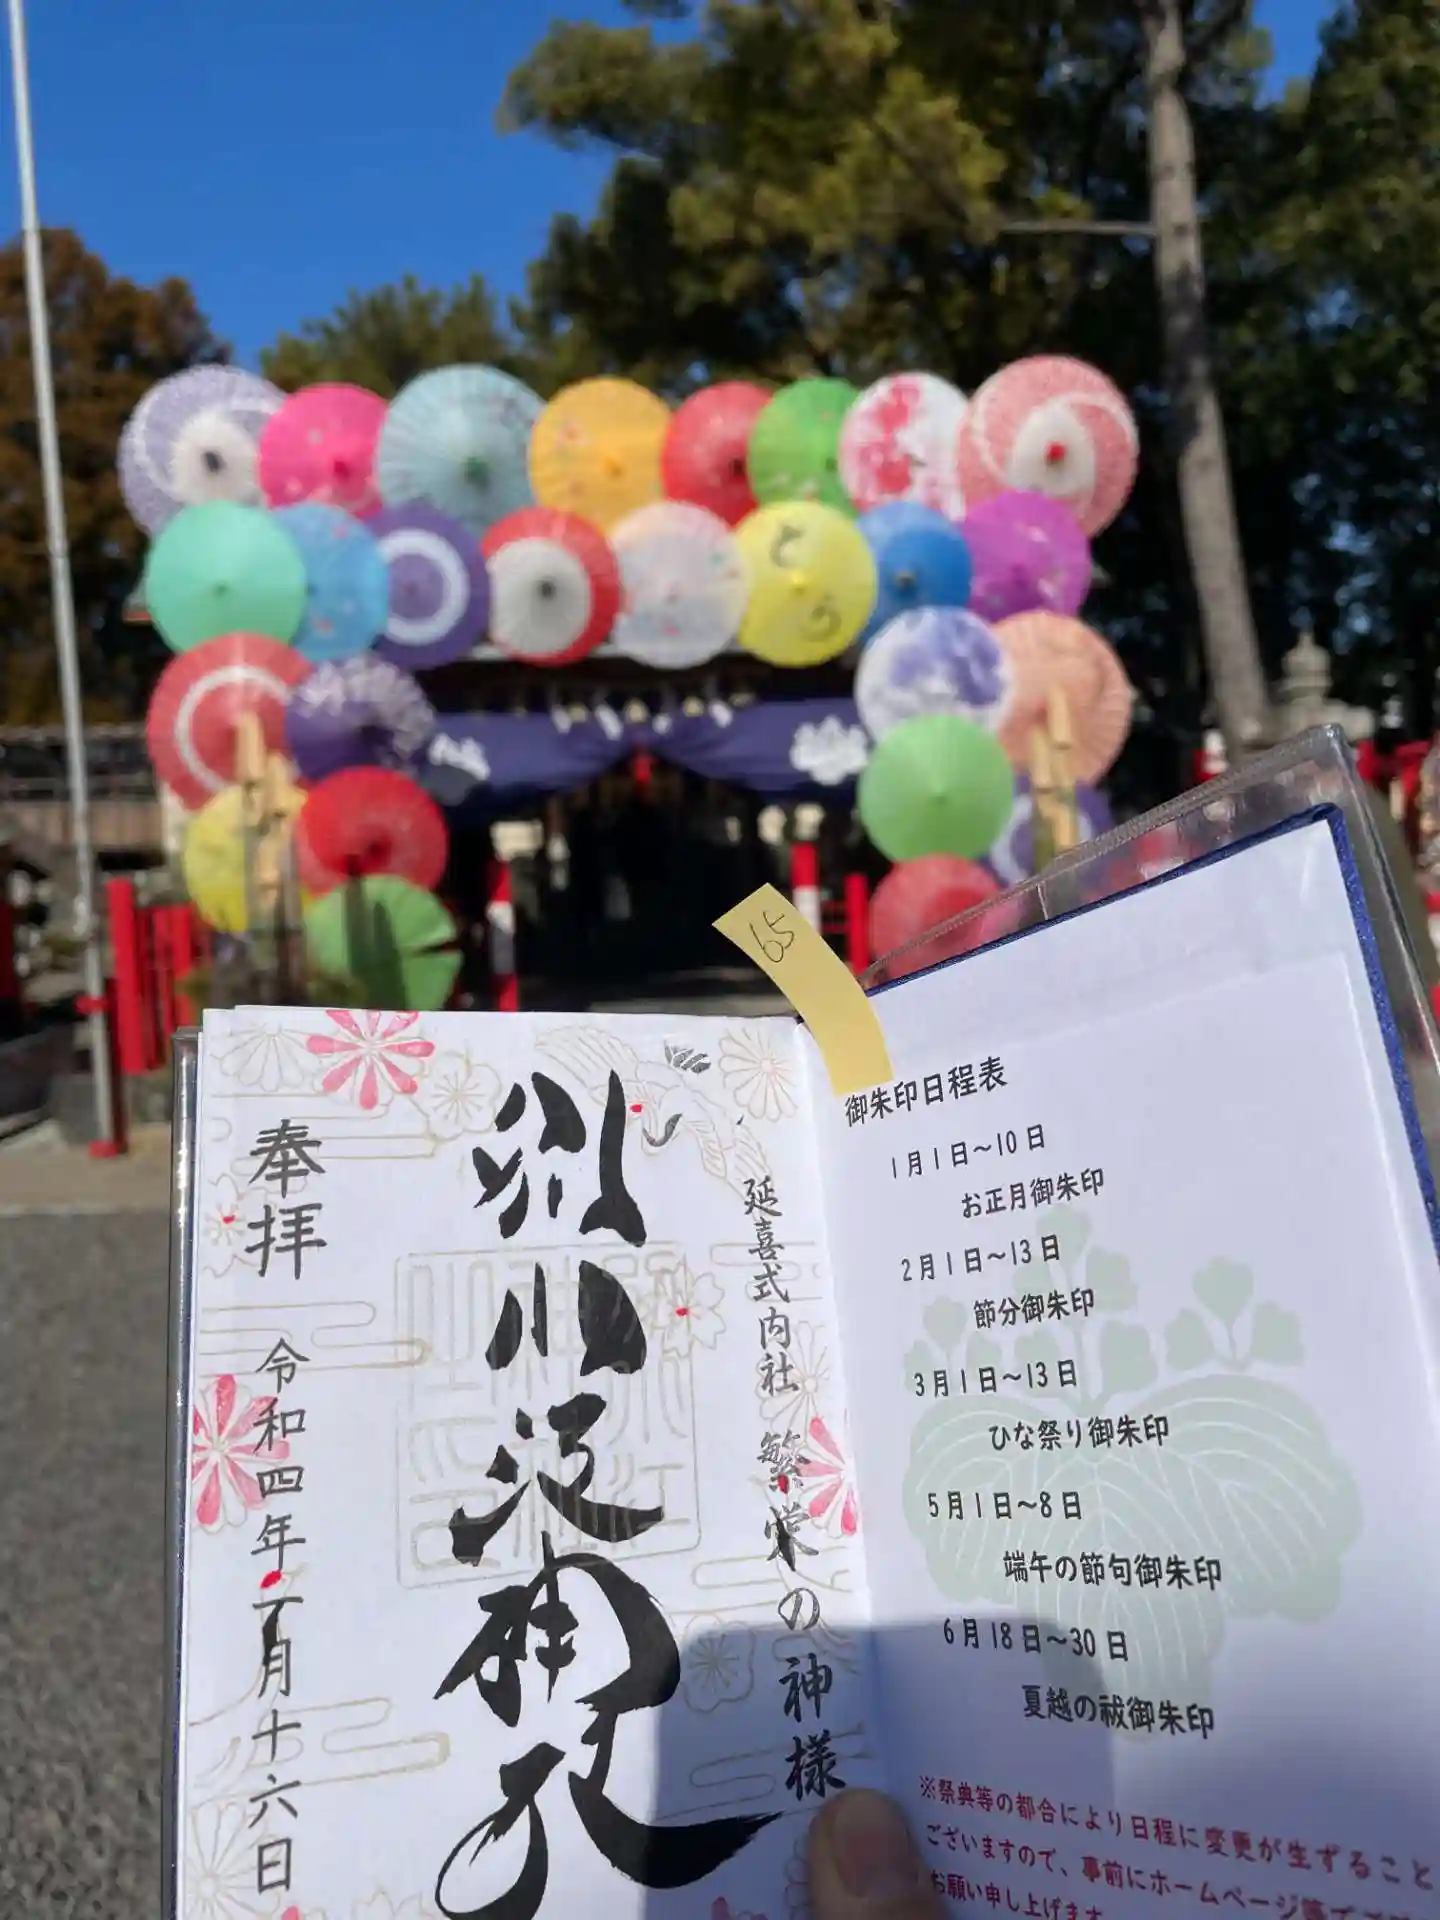 とう
65
延喜式内社 繁栄の神様
別小江神社
奉拝
令和四年一月十六日
御朱印日程表
1月1日～10日
お正月御朱印
2月1日～13日
節分御朱印
3月1日～13日
ひな祭り御朱印
5月1日～8日
端午の節句御朱印
6月18日～30日
夏越の祓御朱印
※祭典等の都合により日程に変更が生ずること
ございますので、事前にホームページ等で
お願い申し上げます